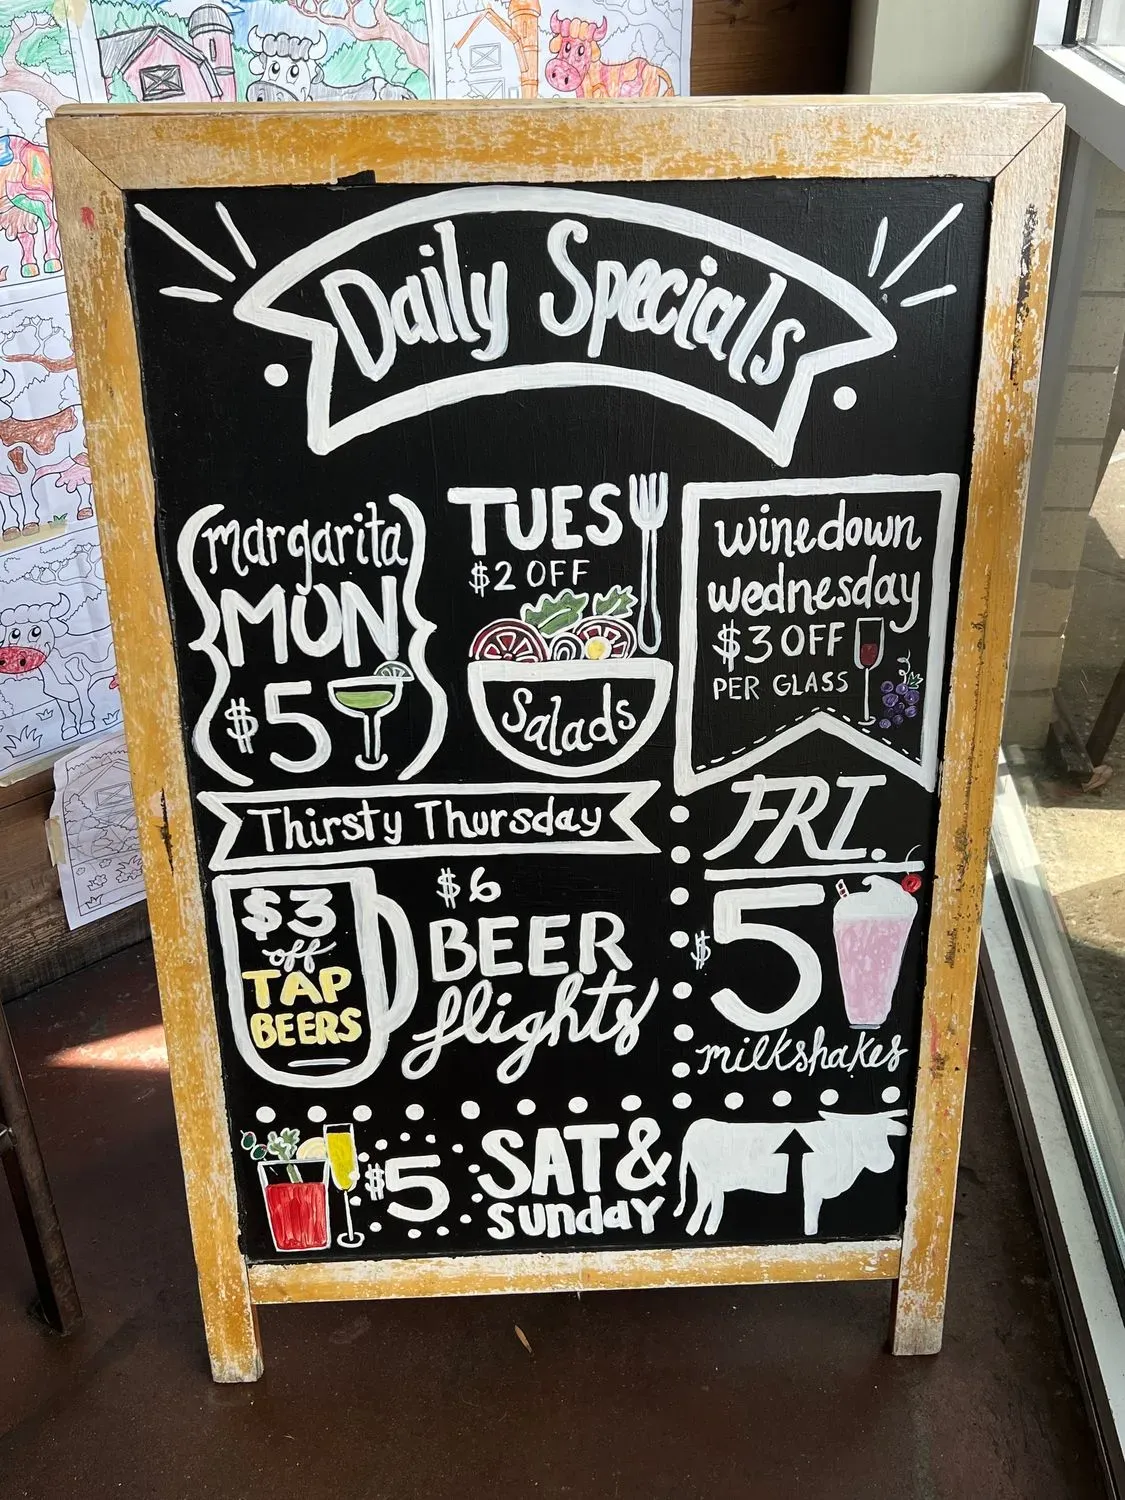 Daily Specials
margarita
MON
$5
TUES
$2 OFF
Salads
winedown
wednesday
$3 OFF
PER GLASS
Thirsty Thursday
$3
off
TAP
BEERS
$6
BEER
flights
FRI.
$5
milkshakes
$5
SAT &
sunday